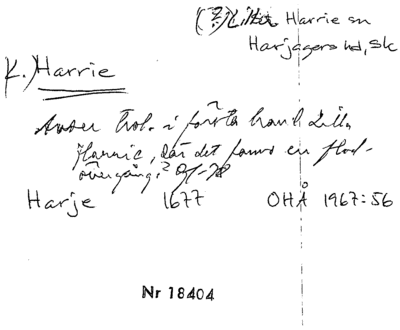 Lilla Harrie sn
Harjagers hd, Sk
K.) Harrie
Avser trol. i första hand Lilla
Harrie, där det fanns en flod-
övergång.
Harje 1677 OHÅ 1967:56
Nr 18404